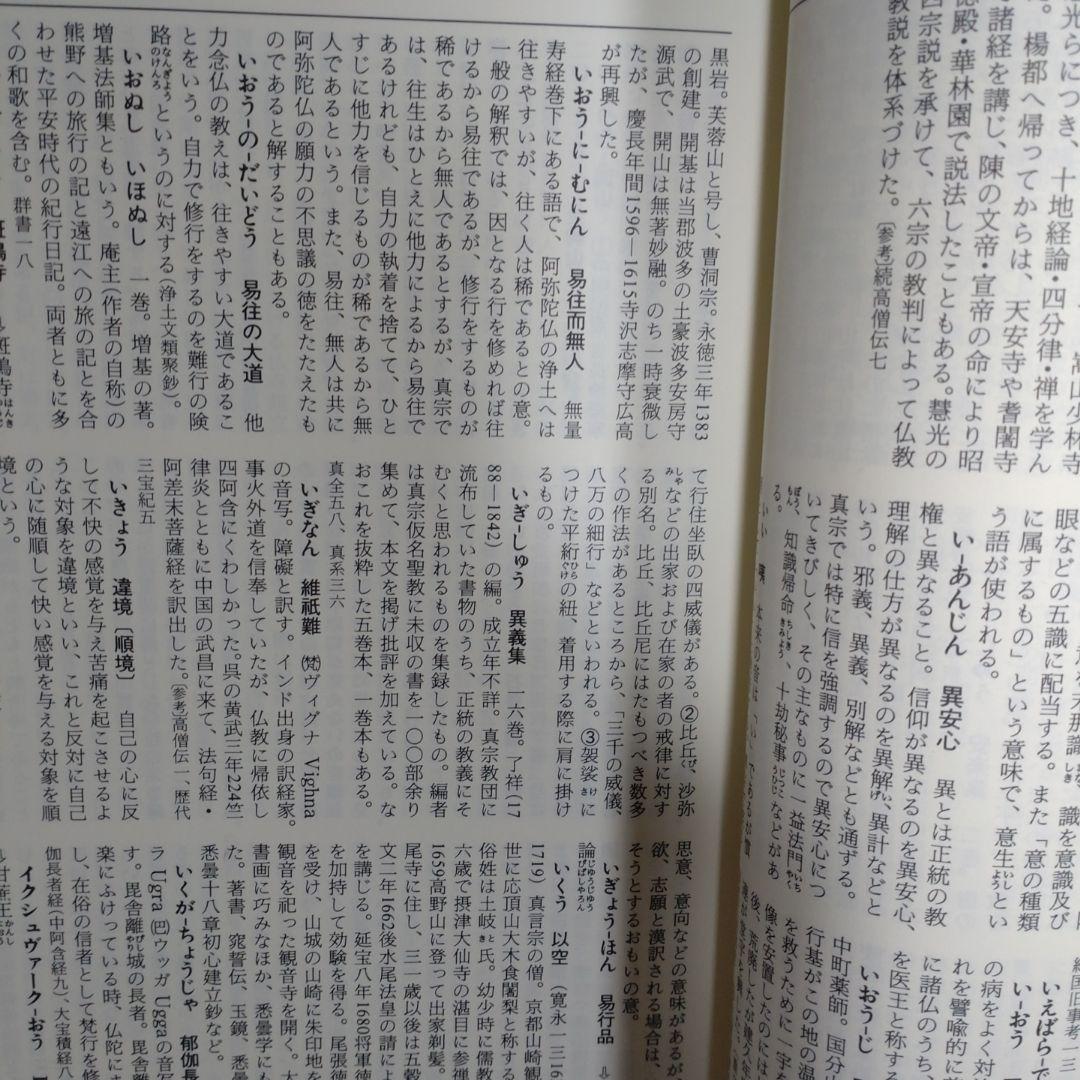 嵩山少林寺
光らにつき、十地経論・四分律・禅を学ん
。楊都へ帰ってからは、天安寺や耆闍寺
諸経を講じ、陳の文帝・宣帝の命により昭
徳殿・華林園で説法したこともある。慧光の
四宗説を承けて、六宗の教判によって仏教
教説を体系づけた。〔参考〕続高僧伝七
識を意識及び
眼などの五識に配当する。また「意の種類
に属するもの」という意味で、意生とい
う語が使われる。
いーあんじん 異安心 異とは正統の教
権と異なること。信仰が異なるのを異安心、
理解の仕方が異なるのを異解、異計などと
いう。邪義、異義、別解などとも通ずる。
真宗では特に信を強調するので異安心につ
いてきびしく、その主なものに一益法門
、知識帰命、十劫秘事などがあ
る。
いえばらーで
れを譬喩的に
に諸仏のうち、
を医王と称する
いーおう
の病をよく対
いおうーじ
中町薬師。国分
行基がこの地の温
を救うために一宇を
像を安置したのには
後、荒廃したが建久年
黒岩。芙蓉山と号し、曹洞宗。永徳三年1383
の創建。開基は当郡波多の土豪波多安房守
源武で、開山は無著妙融。のち一時衰微し
たが、慶長年間1596―1615寺沢志摩守広高
が再興した。
いおうーにーむにん 易往而無人 無量
寿経巻下にある語で、阿弥陀仏の浄土へは
往きやすいが、往く人は稀であるとの意。
一般の解釈では、因となる行を修めれば往
けるから易往であるが、修行をするものが
稀であるから無人であるとするが、真宗で
は、往生はひとえに他力によるから易往で
あるけれども、自力の執着を捨てて、ひと
すじに他力を信じるものが稀であるから無
人であるという。また、易往、無人は共に
阿弥陀仏の願力の不思議の徳をたたえたも
のであると解することもある。
いおうーのーだいどう 易往の大道 他
力念仏の教えは、往きやすい大道であるこ
とをいう。自力で修行をするのを難行の険
路というのに対する(浄土文類聚鈔)。
いおぬし いほぬし 一巻。増基の著。
増基法師集ともいう。庵主(作者の自称)の
熊野への旅行の記と遠江への旅の記とを合
わせた平安時代の紀行日記。両者ともに多
くの和歌を含む。 群書一八
斑鳩寺 ⇩斑鳩寺
て行住坐臥の四威儀がある。②比丘、沙弥
などの出家および在家の者の戒律に対す
る別名。比丘、比丘尼にはたもつべき数多
くの作法があるところから、「三千の威儀、
八万の細行」などといわれる。③袈裟に
つけた平絎の紐、着用する際に肩に掛け
るもの。
いぎーしゅう 異義集 一六巻。了祥(17
88―1842)の編。成立年不詳。真宗教団に
流布していた書物のうち、正統の教義にそ
むくと思われるものを集録したもの。編者
は真宗仮名聖教に未収の書を一〇〇部余り
集めて、本文を掲げ批評を加えている。な
おこれを抜粋した五巻本、一巻本もある。
真全五八、真系三六
いぎなん 維祇難 ㊩ヴィグナ Vighna
の音写。障礙と訳す。インド出身の訳経家。
事火外道を信奉していたが、仏教に帰依し
四阿含にくわしかった。呉の黄武三年224竺
律炎とともに中国の武昌に来て、法句経・
阿差末菩薩経を訳出した。〔参考〕高僧伝一、歴代
三宝紀五
いきょう 違境〔順境〕 自己の心に反
して不快の感覚を与え苦痛を起こさせるよ
うな対象を違境といい、これと反対に自己
の心に随順して快い感覚を与える対象を順
境という。
思意、意向などの意味があるが、
欲、志願と漢訳される場合は、
そうとするおもいの意。
いぎょうーほん 易行品 ⇩
論
いくう 以空 (寛永一三16
1719)真言宗の僧。京都山崎観
世に応頂山大木食闍梨と称する
俗姓は土岐氏。幼少時に儒教
六歳で摂津大仙寺の湛目に参禅
1659高野山に登って出家剃髪。
尾寺に住し、三一歳以後は五穀
文二年1662後水尾法皇の請によ
を講じる。延宝八年1680将軍徳
を加持して効験を得る。尾張徳
を受け、山城の山崎に朱印地を
観音を祀った観音寺を開く。大
書画に巧みなほか、悉曇学にも
た。著書、窕誓伝、玉鏡、悉曇
悉曇十八章初心建立鈔など。
いくがーちょうじゃ 郁伽長
ラ Ugra ㊥ウッガ Ugga の音写
す。毘舎離城の長者。毘舎離
楽にふけっている時、仏陀に
し、在俗の信者として梵行を修
伽長者経(中阿含経九)、大宝積経八
イクシュヴァークーおう
⇩甘蔗王